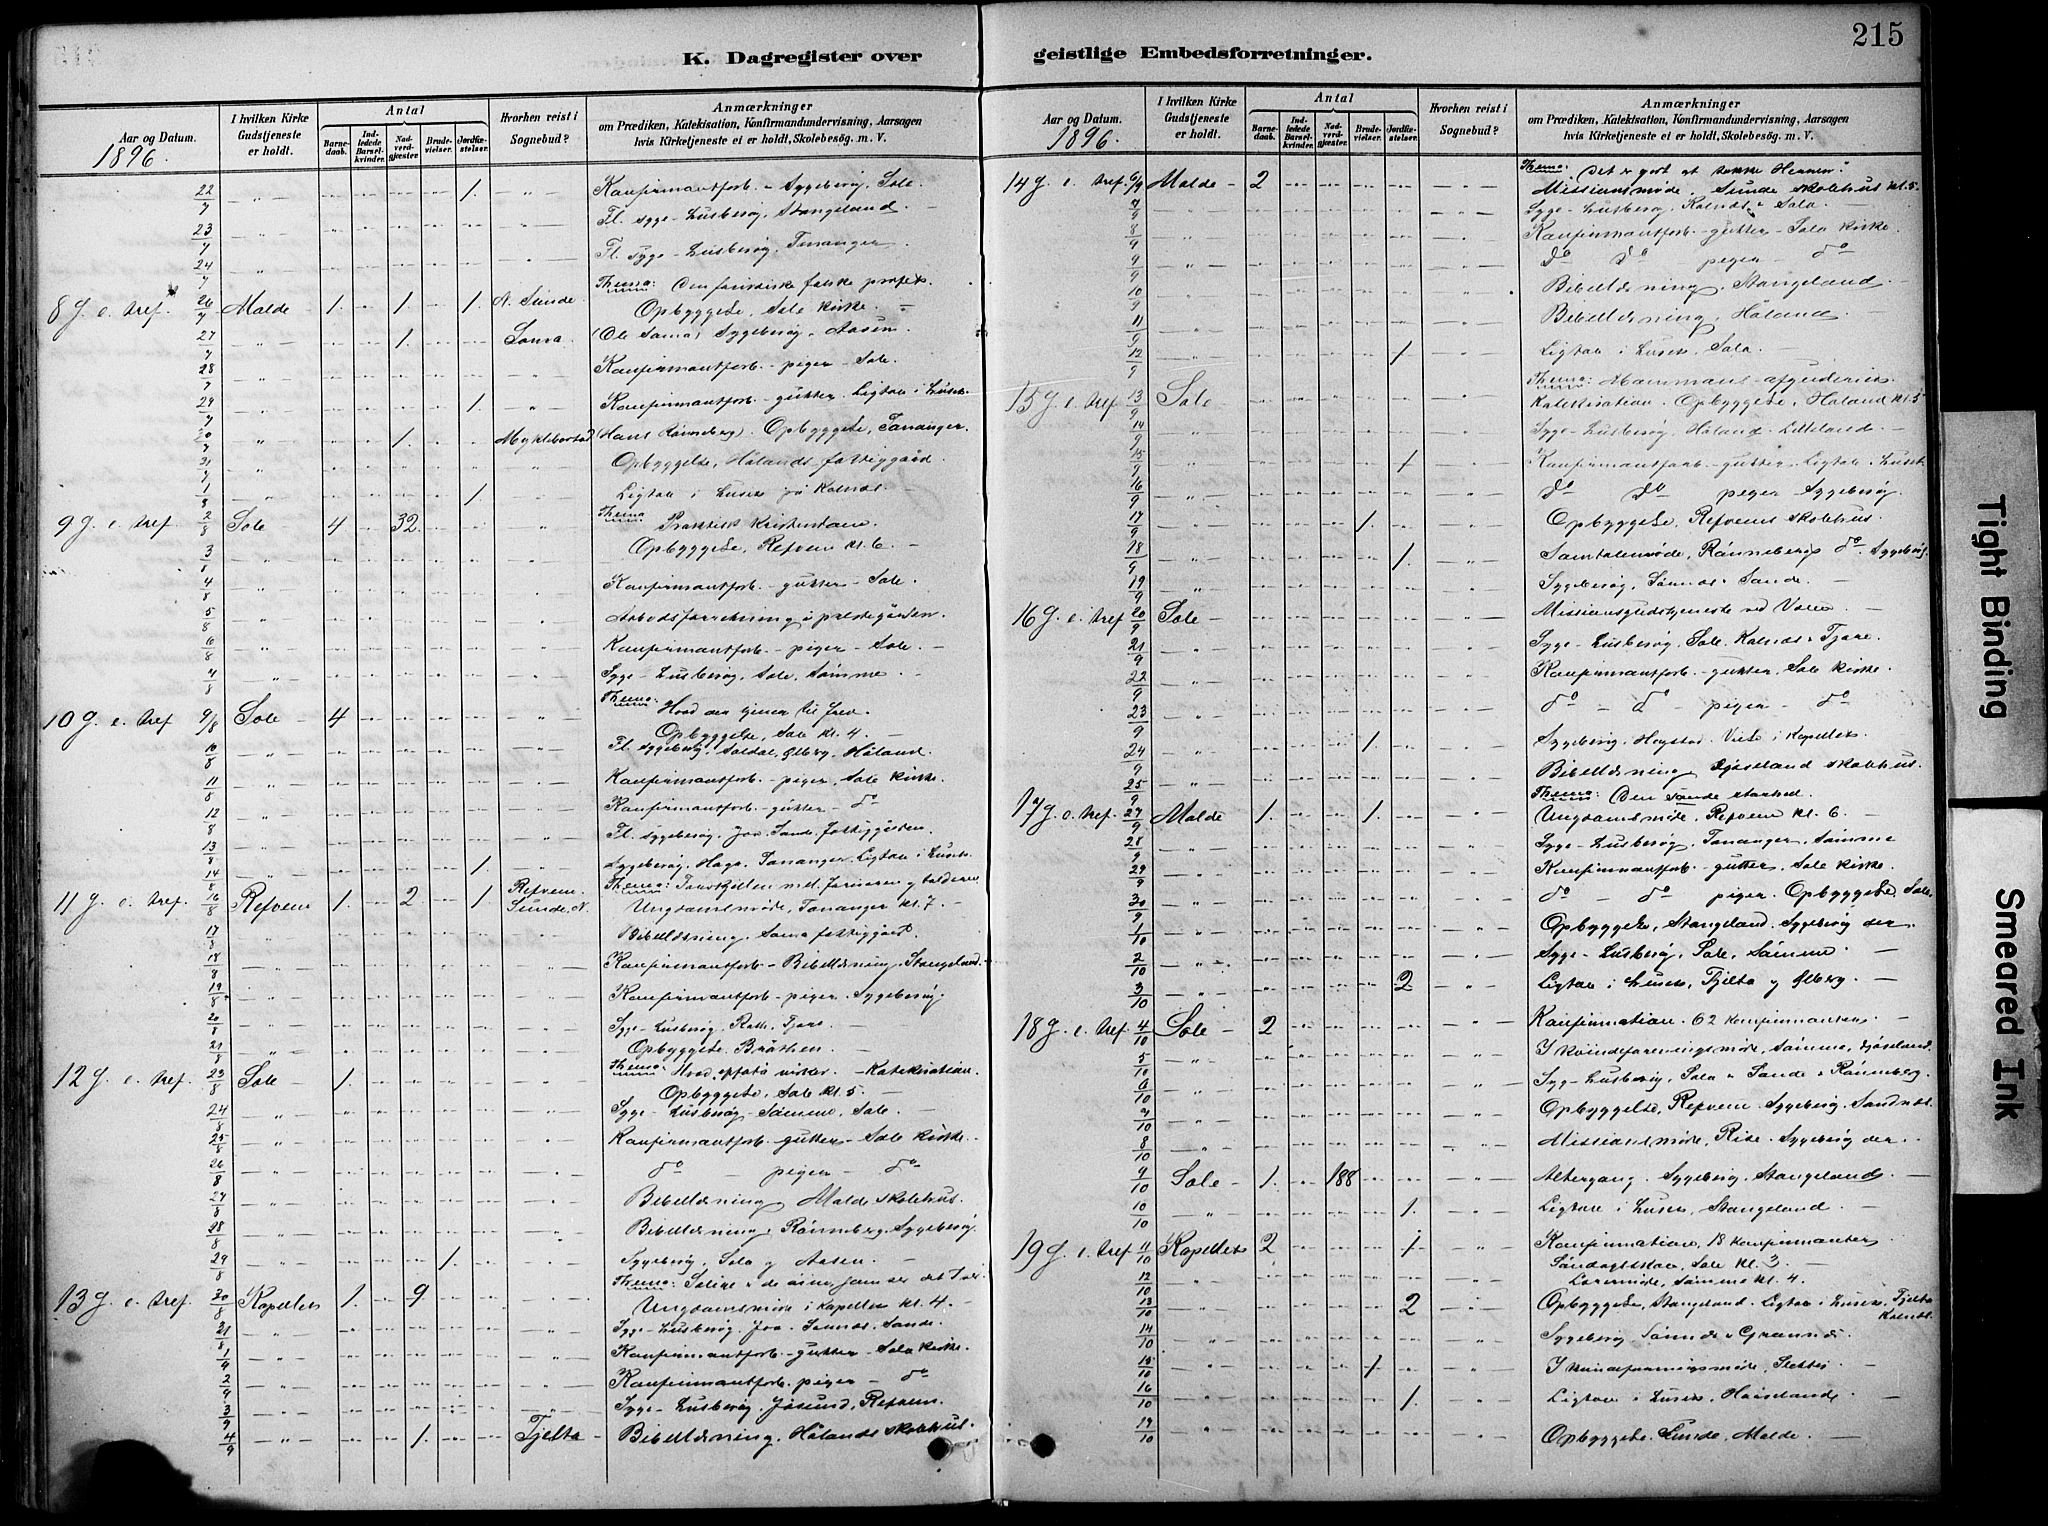 215
K. Dagregister over geistlige Embedsforretninger.
Aar og Datum.
I hvilken Kirke Gudstjeneste er holdt.
Antal
Barnedaab.
Indledede Barselkvinder.
Nadverdgjæster
Brudevielser.
Jordfæstelser.
Hvorhen reist i Sognebud?
Anmærkninger
om Prædiken, Katekisation, Konfirmandundervisning, Aarsagen hvis Kirketjeneste ei er holdt, Skolebesög. m. V.
1896.
22/7 1. Konfirmantforb. - Sygebesög, Sole.
23/7 Fl. syge- Husbesög, Stangeland.
24/7 Fl. syge- Husbesög, Tananger.
8 G. e. tref. 26/7 Malde 1. 1. 1. N. Sunde Thema:
Opbyggelse, Sole Kirke.
27/7 1. Soma Sygebesög, Aasen.
28/7 Konfirmantforb. - piger - Sole.
29/7 1. Konfirmantforb. - gutter. Ligtale i Huset.
1. Myklebostad (Hans Rönneberg). Opbyggelse, Tananger.
31/7 Opbyggelse, Hålands fattiggård.
1/8 1 Ligtale i Huset på Kolnæs.
9 G. e. tref 2/8 Sole 4 32. Thema Praktisk Kristendom.
Opbyggelse, Refvem kl. 6.
3/8
4/8 Konfirmantforb. - gutter - Sole.
5/8 i præstegården.
6/8 Konfirmantforb. - piger - Sole.
7/8 Syge- Husbesög, Sole, Sömme.
10 G. e. tref 9/8 Sole 4 Thema: Hvad der tjener til fred.
Opbyggelse, Sole kl. 4.
10/8 Fl. sygebesög, Soldal, Ølberg, Håland.
11/8 Konfirmantforb. - piger, Sole Kirke.
12/8 Konfirmantforb. - gutter - do
13/8 Fl. sygebesög, Joa, Sande, fattiggården.
14/8 1. Sygebesög, Haga, Tananger. Ligtale i Huset.
11 G. e. tref. 16/8 Refvem 1. 2 1 Refvem Sunde, N. Thema:
Ungdomsmöde, Tananger kl. 7.
17/8 Bibellæsning, Soma fattiggård.
18/8 Konfirmantforb - Bibellæsning, Stangeland.
19/8 Konfirmantforb - piger. Sygebesög.
20/8 Syge- Husbesög, Roth, Tjora.
21/8 Opbyggelse. Bråthen.
12 G. e. tref. 23/8 Sole 1. Thema: Katekisation.
Opbyggelse, Sole kl. 5.
24/8 Syge- Husbesög, Sömme, Sole.
25/8 Konfirmantforb - gutter - Sole Kirke.
26/8 do - piger - do
27/8 Bibellæsning, Malde skolehus.
28/8 Bibellæsning, Rönneberg, Sygebesög.
29/8 1. Sygebesög, Sola og Aasen.
13 G. e. tref. 30/8 Kapellet 1. 9. Thema:
Ungdomsmöde i Kapellet kl. 4.
31/8 Syge- Husbesög, Joa, Sömnæs, Sande.
1/9 Konfirmantforb - gutter - Sola Kirke.
2/9 Konfirmantforb. piger - do
3/9 Syge- Husbesög, Jåsund, Refvem.
4/9 1. Tjelta Bibellæsning, Hålands skolehus.
Aar og Datum.
I hvilken Kirke Gudstjeneste er holdt.
Antal
Barnedaab.
Indledede Barselkvinder.
Nadverdgjæster.
Brudevielser.
Jordfæstelser.
Hvorhen reist i Sognebud?
Anmærkninger
om Prædiken, Katekisation, Konfirmandundervisning, Aarsagen hvis Kirketjeneste ei er holdt, Skolebesög. m. V.
1896.
14 G. e. tref 6/9 Malde 2 Thema: Det er godt at takke Herren.
Missionsmöde, Sunde Skolehus kl. 5.
7/9 Syge- Husbesög, Kolnæs, Sola.
8/9 Konfirmantforb - gutter - Sola Kirke.
9/9 do do piger - do
10/9 Bibellæsning, Stangeland.
11/9 Bibellæsning, Håland.
12/9 1 Ligtale i Huset, Sola.
15 G. e. tref. 13/9 Sole Thema: Mammons-afguderiet.
Katekisation. Opbyggelse, Håland kl. 5
14/9 Syge- Husbesög, Håland
15/9 1 Konfirmantforb - gutter. Ligtale i Huset.
16/9 do do piger Sygebesög
17/9 1. Opbyggelse, Refvems skolehus.
18/9 1. Samtalemöde, Rönnebergs do. Sygebesög.
19/9 Sygebesög, Sömnæs, Sande.
16 G. e. tref 20/9 Sole
21/9 Syge- Husbesög, Sole, Kolnæs, Tjora.
22/9 Konfirmantforb - gutter, Sole Kirke.
23/9 do - do piger - do
24/9 1 Sygebesög, Vielse i Kapellet.
25/9 Bibellæsning, Djöseland skolehus.
17 G. e. tref. 27/9 Malde 1. 1. Thema: Den sande storhed.
Ungdomsmöde, Refvem kl. 6.
28/9 Syge- Husbesög, Tananger, Sömme
29/9 Konfirmantforb - gutter, Sole Kirke.
30/9 do - do piger, Opbyggelse, Sole.
1/10 Opbyggelse, Stangeland. Sygebesög der.
2/10 Syge- Husbesög, Sole, Sömme.
3/10 2. Ligtale i Huset, Tjelta og Ølberg.
18 G. e. tref. 4/10 Sole 2 Konfirmation. 62 konfirmanter.
5/10 I Kvindeforeningsmöde, Sömme, Djöseland.
6/10 Syge- Husbesög, Sola, Sande, Rönneberg.
7/10 Opbyggelse, Refvem. Sygebesög, Sandnæs.
8/10 Missionsmöde, Risa. Sygebesög der.
9/10 Sole 1. 188 Altergang. Sygebesög, Stangeland.
10/10 1. Ligtale i Huset, Stangeland.
19 G. e. tref. 11/10 Kapellet 2 1 Konfirmation, 18 konfirmanter
Söndagsskole, Sole kl. 3
12/10 Sömme kl. 4.
13/10 2 Opbyggelse, Stangeland. Ligtale i Huset, Tjelta Kolnæs.
14/10 Sygebesög
15/10 1 I Kvindeforeningsmöde,
16/10 1. Ligtale i Huset,
19/10 Opbyggelse. Sunde, Malde.
Tight Binding
Smeared Ink